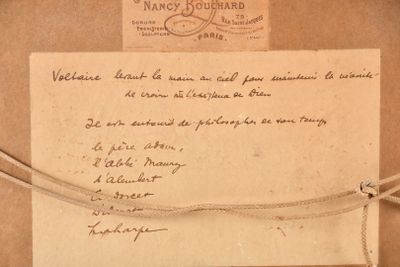 NANCY BOUCHARD
DORURE
ENCADREMENTS
SCULPTURE
75
Rue Saint Jacques
PARIS
Voltaire levant la main au ciel pour maintenir la nécessité
de croire à l'existence de Dieu
Il est entouré de philosophes de son temps
le père adam,
l'abbé Maury
d'alembert
Condorcet
Diderot
Laharpe